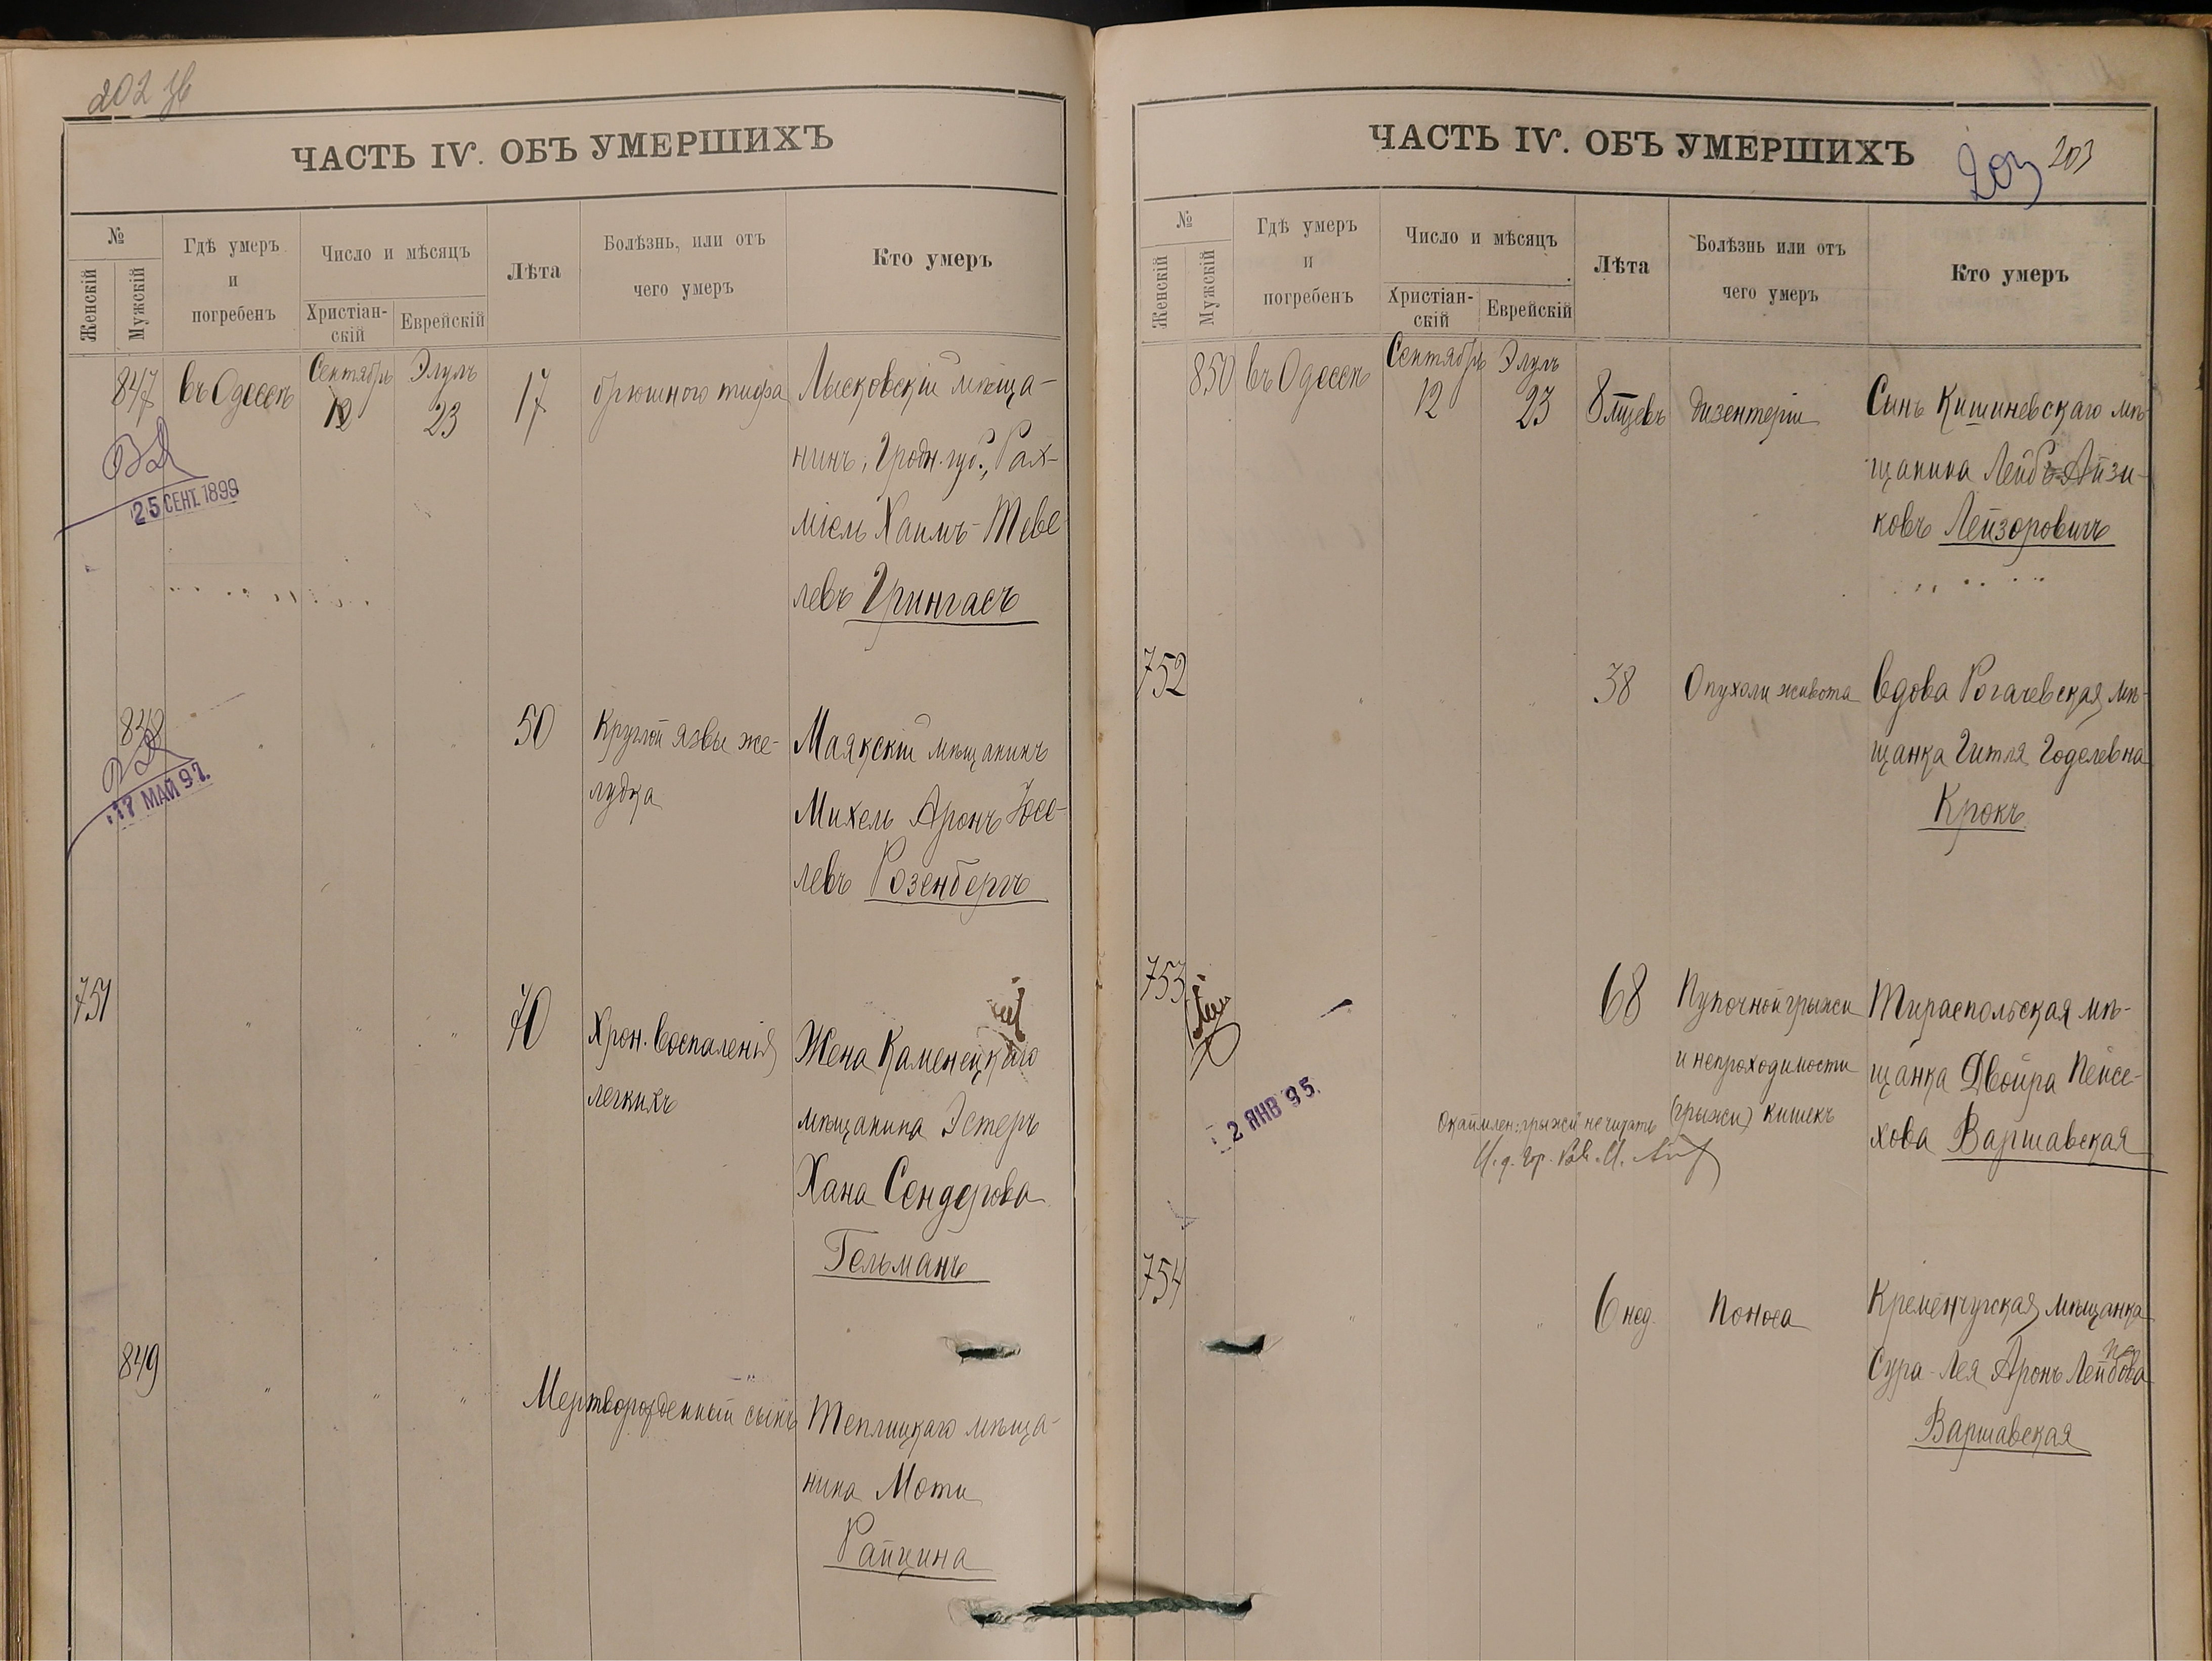 202
ЧАСТЬ IV. ОБЪ УМЕРШИХЪ
№
Женскій
Мужскій
Гдѣ умеръ
и
погребенъ
Число и мѣсяцъ
Христіан-
скій
Еврейскій
Лѣта
Болѣзнь, или отъ
чего умеръ
Кто умеръ
847
въ Одессѣ
Сентябрь
12
Элулъ
23
17
брюшного тифа
Лысковскій мѣща-
нинъ, Гродн. губ., Рах-
міель Хаимъ-Теве-
левъ Грингасъ
25 СЕНТ. 1899
848
50
Круглой язвы же-
лудка
Маякскій мѣщанинъ
Михель Аронъ Іосе-
левъ Розенбергъ
17 МАЙ 97.
751
70
Хрон. воспаленія
легкихъ
Жена Каменецкаго
мѣщанина Эстеръ
Хана Сендерова
Гельманъ
849
Мертворожденный сынъ
Теплицкаго мѣща-
нина Моти
Райцина
ЧАСТЬ IV. ОБЪ УМЕРШИХЪ
203
203
№
Женскій
Мужскій
Гдѣ умеръ
и
погребенъ
Число и мѣсяцъ
Христіан-
скій
Еврейскій
Лѣта
Болѣзнь или отъ
чего умеръ
Кто умеръ
850
въ Одессѣ
Сентябрь
12
Элулъ
23
8 мцевъ
дизентеріи
Сынъ Кишиневскаго мѣ-
щанина Лейбъ-Айзи-
ковъ Лейзоровичъ
752
38
Опухоли живота
Вдова Рогачевская мѣ-
щанка Гитля Годелевна
Крокъ
753
68
Пупочной грыжи
и непроходимости
(грыжи) кишекъ
Тираспольская мѣ-
щанка Двойра Пейсе-
хова Варшавская
2 ЯНВ 95.
Окаймлен: грыжи не читать
И. д. Гор. Рав.
754
6 нед.
Поноса
Кременчугская мѣщанка
Сура-Лея Аронъ Лейбова
Варшавская